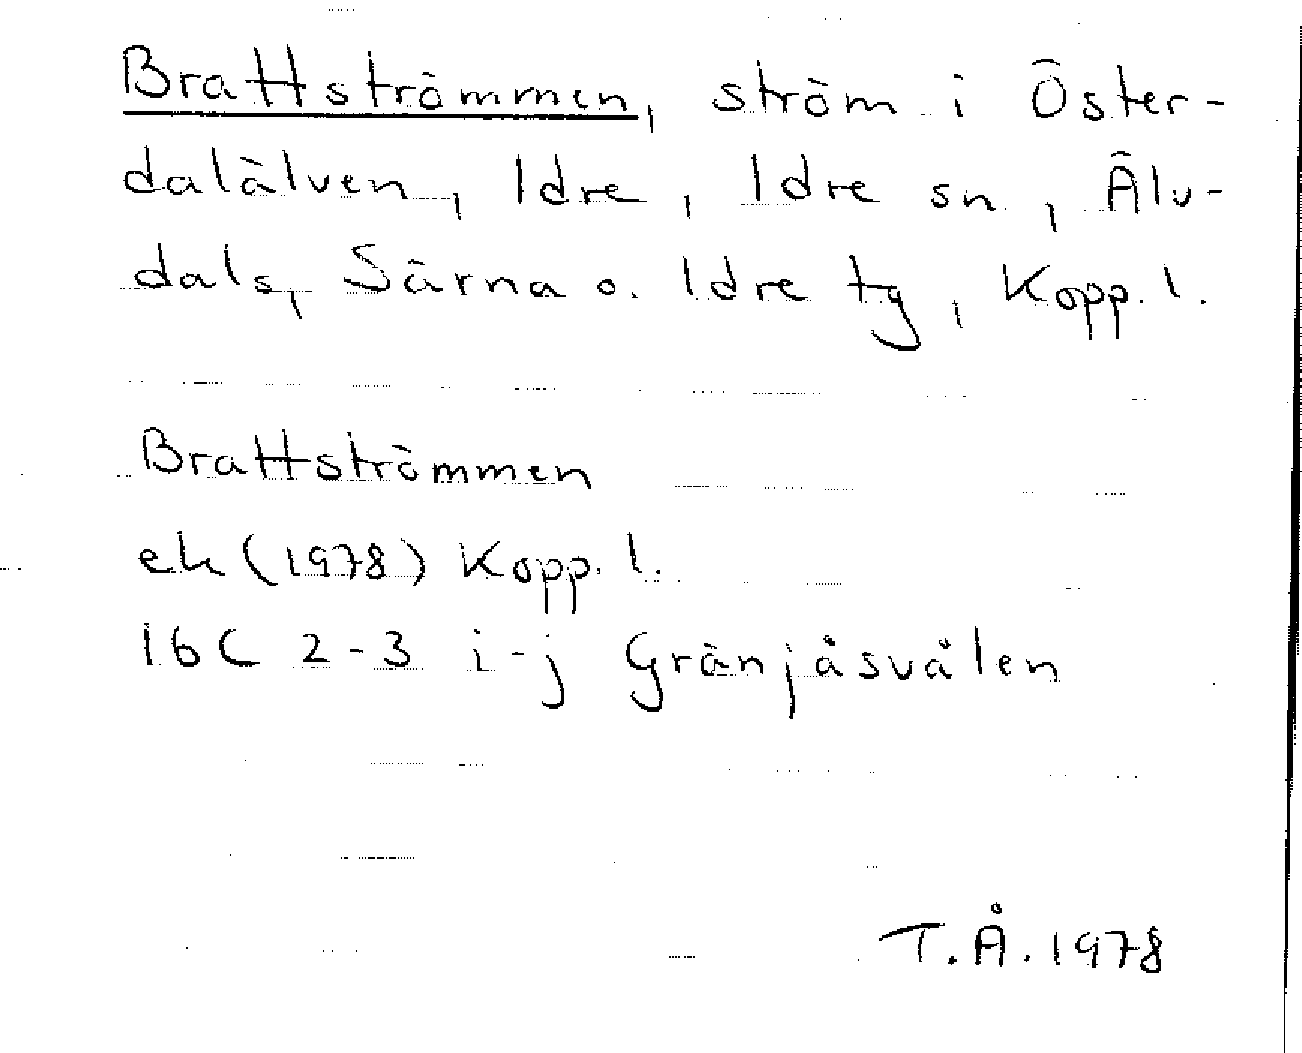 Brattströmmen, ström i Öster-
dalälven, Idre, Idre sn, Älv-
dals, Särna o. Idre tg, Kopp. l.
Brattströmmen
ek (1978) Kopp. l.
16C 2-3 i-j Gränjåsvålen
T.Å. 1978